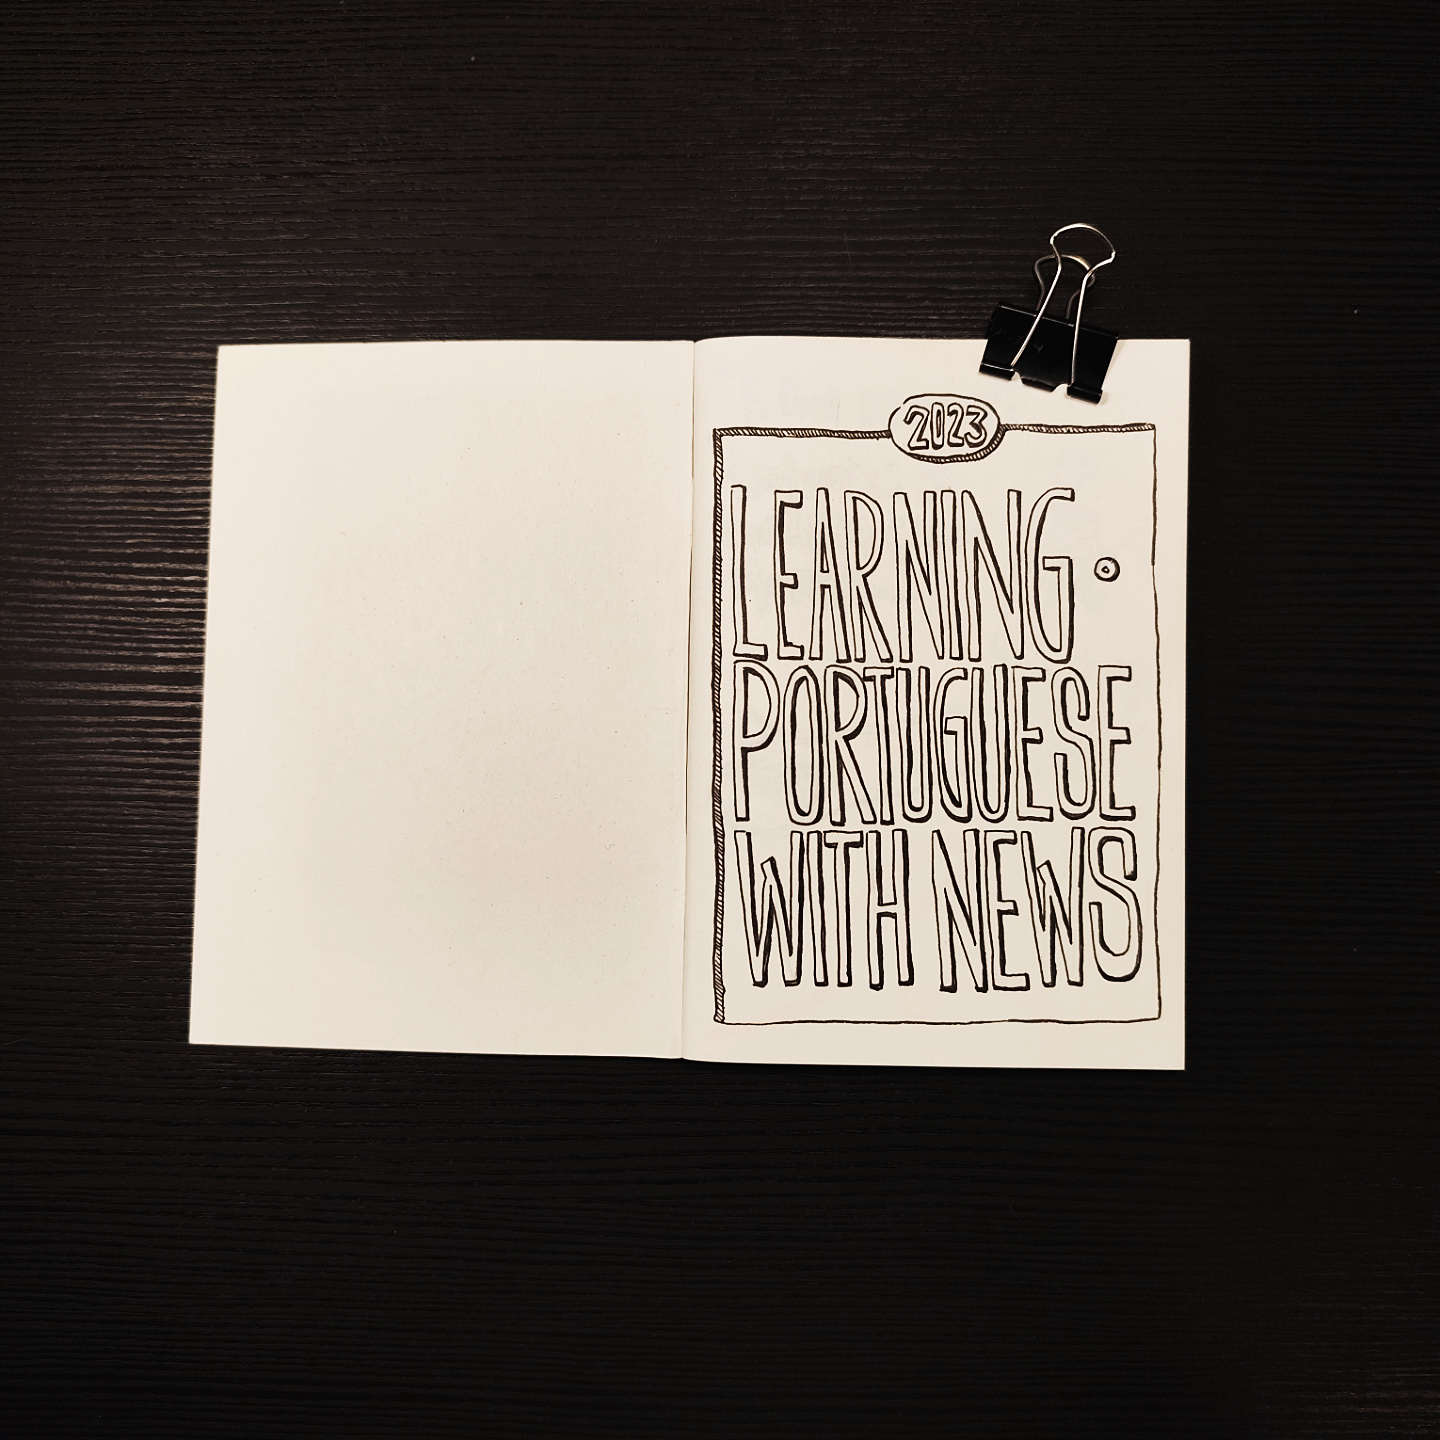 2023
LEARNING
PORTUGUESE
WITH NEWS